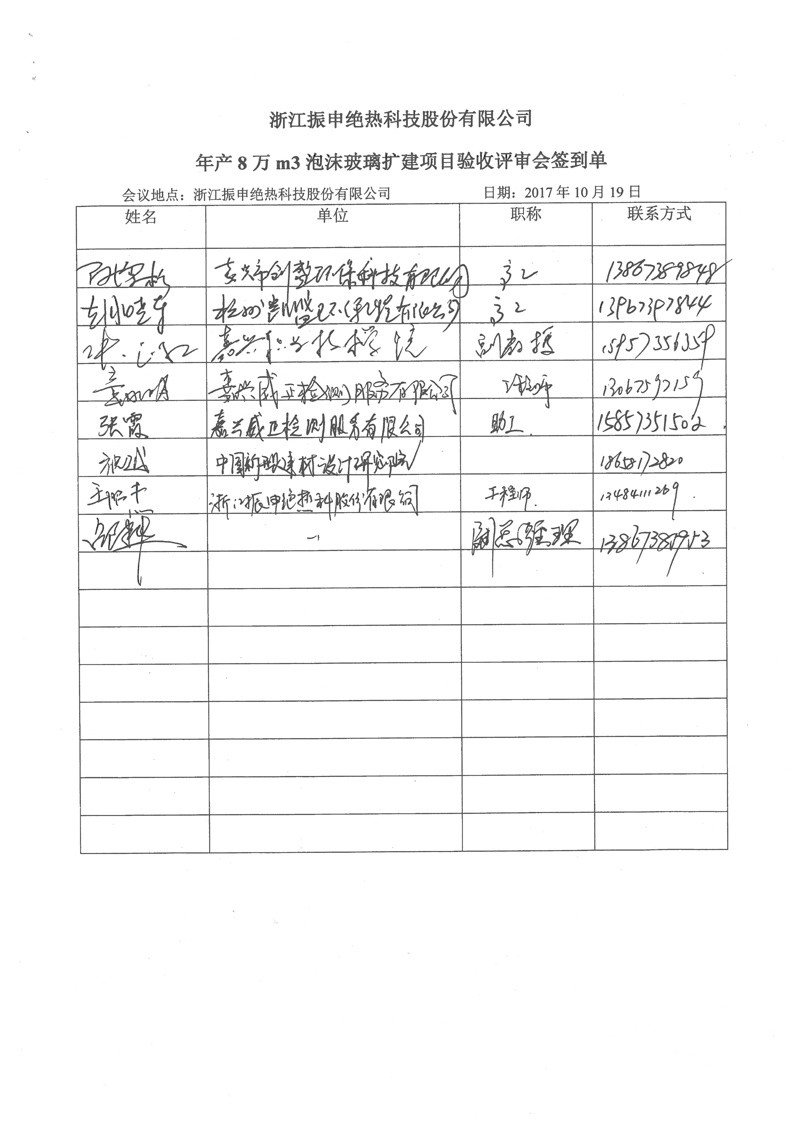 浙江振申绝热科技股份有限公司
年产 8 万 m3 泡沫玻璃扩建项目验收评审会签到单
会议地点：浙江振申绝热科技股份有限公司 日期：2017 年 10 月 19 日
姓名 单位 职称 联系方式
嘉兴市创 环保科技有限公司 高工 13867389848
杭州 环保 有限公司 高工 13967397844
嘉兴职业技术学院 副教授 15957356359
嘉兴威正检测服务有限公司 工程师 13067597159
张霞 嘉兴威正检测服务有限公司 助工 15857351502
中国新型建材设计研究院 18658172820
浙江振申绝热科技股份有限公司 工程师 13484111269
副总经理 13867380953